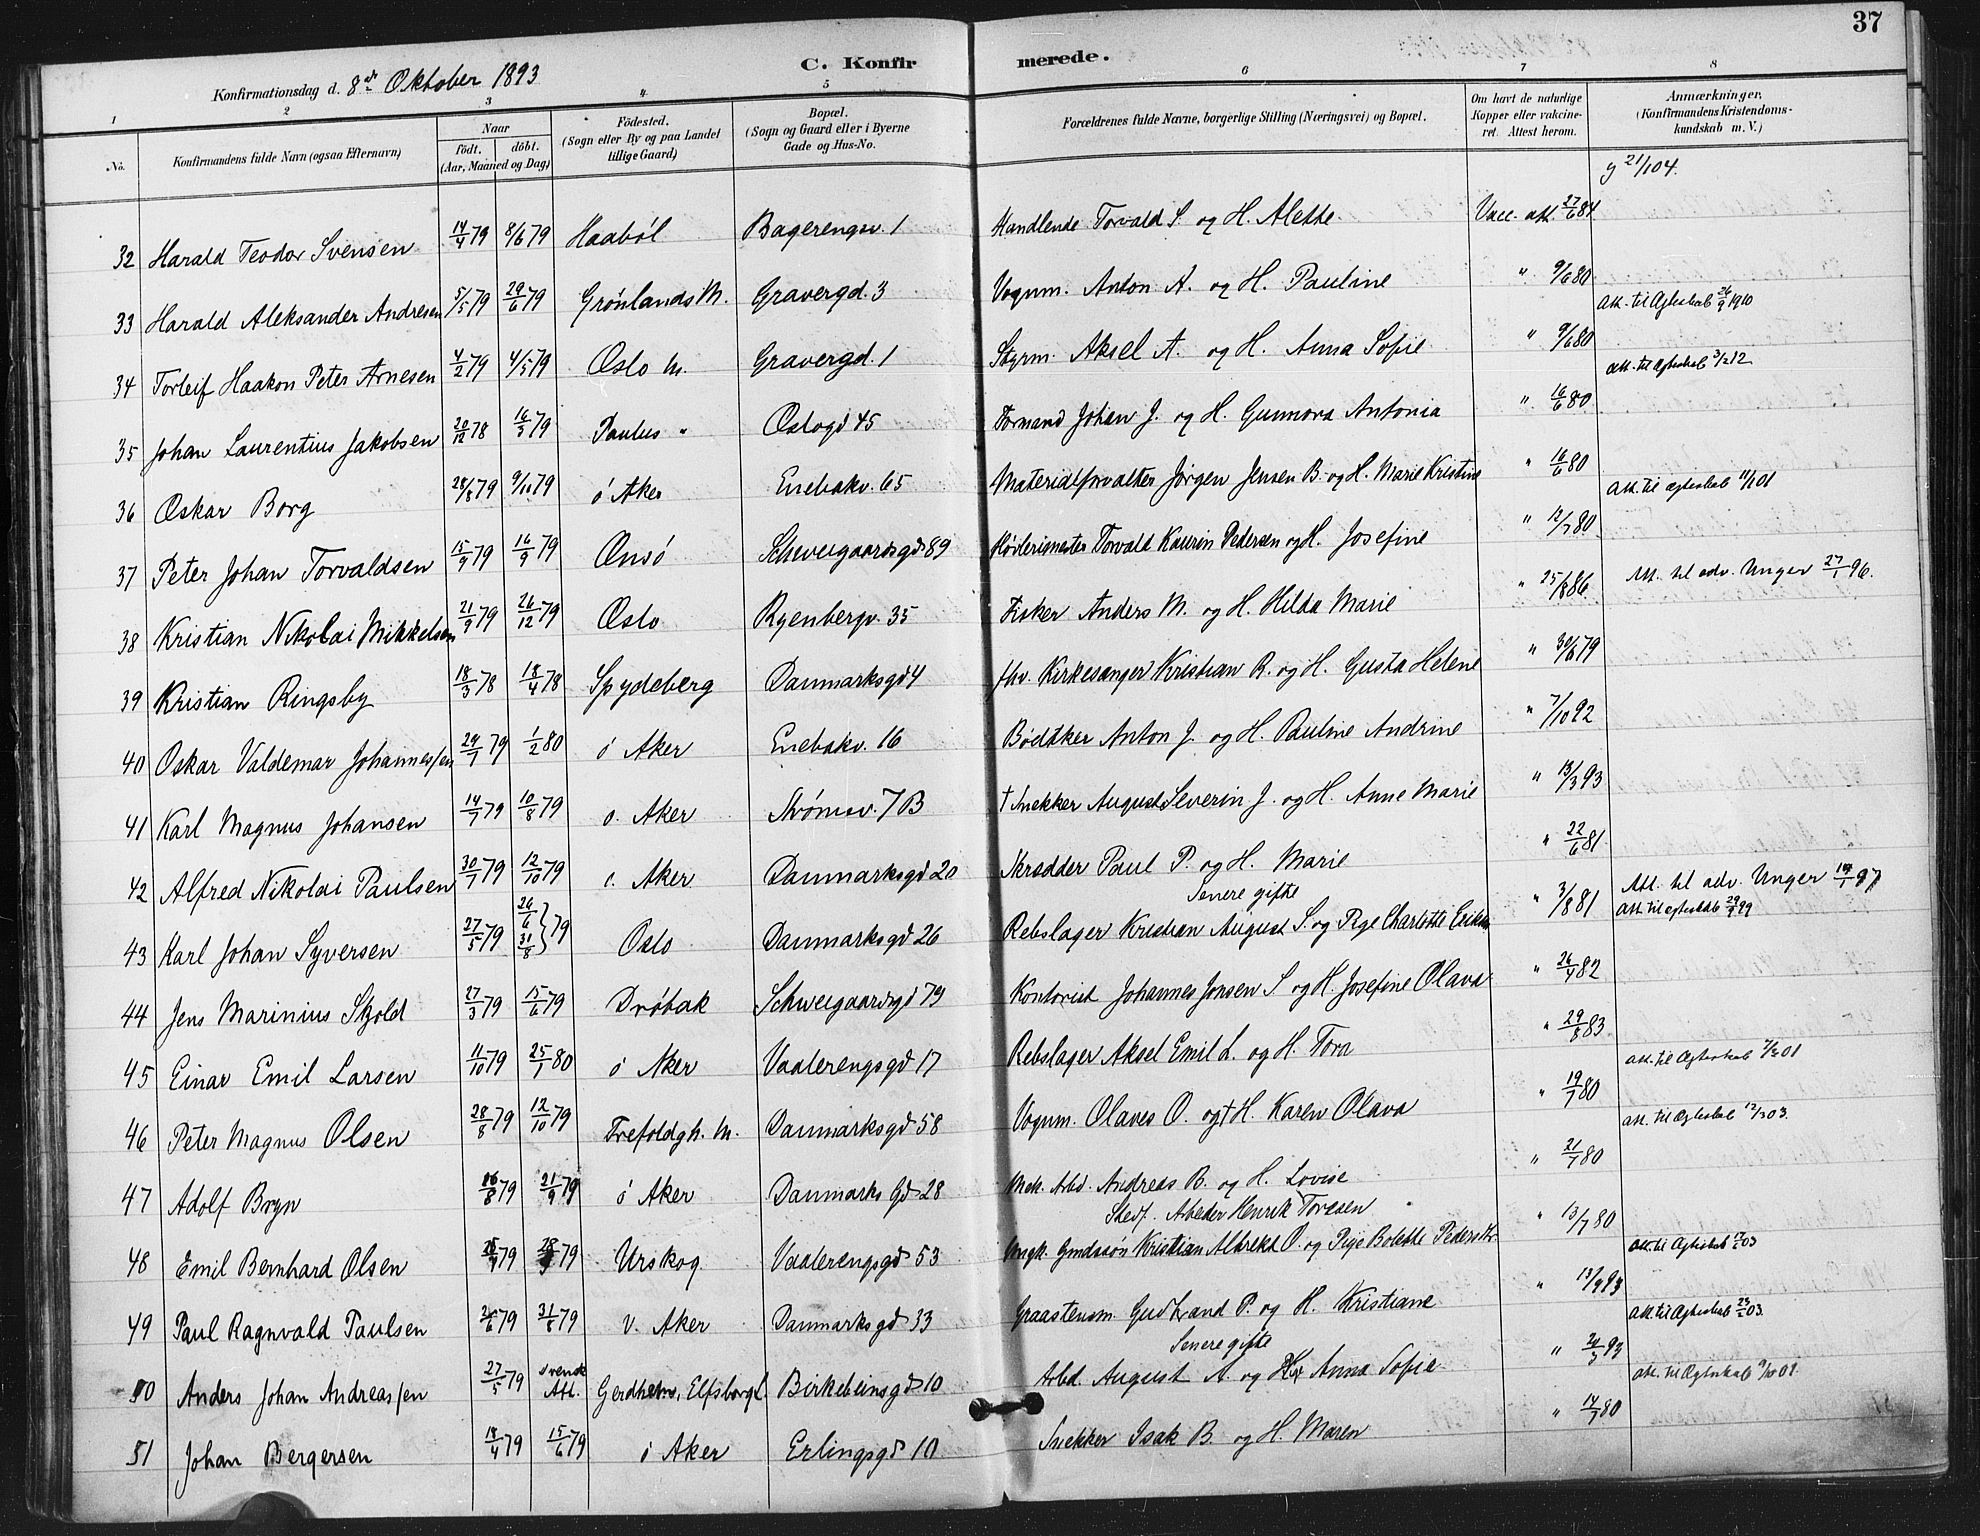 37
Konfirmationsdag d. 8de Oktober 1893
C. Konfirmerede.
1 2 3 4 5 6 7 8
No.
Konfirmandens fulde Navn (ogsaa Efternavn)
Naar födt. döbt. (Aar, Maaned og Dag)
Födested. (Sogn eller By og paa Landet tillige Gaard)
Bopæl. (Sogn og Gaard eller i Byerne Gade og Hus-No.
Forældrenes fulde Navne, borgerlige Stilling (Næringsvei) og Bopæl.
Om havt de naturlige Kopper eller vakcineret. Attest herom.
Anmærkninger, (Konfirmandens Kristendomskundskab m. V.)
32 Harald Teodor Svensen 14/4 79 8/6 79 Haaböl Bagerengsv. 1 Handlende Torvald S. og H. Alette Vacc. att. 27/6 84 g 21/1 04.
33 Harald Aleksander Andresen 5/5 79 29/6 79 Grönlands M. Gravergd. 3 Vognm. Anton A. og H. Pauline " 9/6 80 att. til Ægteskab 26/9 1910
34 Torleif Haakon Peter Arnesen 4/2 79 4/5 79 Oslo M. Gravergd. 1 Styrm. Aksel A. og H. Anna Sofie " 9/6 80 att. til Ægteskab 3/2 12
35 Johan Laurentius Jakobsen 20/12 78 16/3 79 Paulus " Oslogd 45 Formand Johan J. og H. Gunnora Antonia " 16/6 80
36 Oskar Borg 28/8 79 9/11 79 ö Aker Enebakv. 65 Materialforvalter Jörgen Jensen B. og H. Marie Kristine " 16/6 80 att. til ægteskab 11/1 01
37 Peter Johan Torvaldsen 15/9 79 16/9 79 Onsö Schweigaardsgd 89 Hövlerimester Torvald Kaurin Pedersen og H. Josefine " 12/7 80
38 Kristian Nikolai Mikkelsen 21/9 79 26/12 79 Oslo Ryenbergv. 35 Fisker Anders M. og H. Hilda Marie " 25/8 86 Att. til adv. Unger 27/1 96.
39 Kristian Ringsby 18/3 78 18/4 78 Spydeberg Danmarksgd 4 fhv. Kirkesanger Kristian R. og H. Gusta Helene " 30/6 79
40 Oskar Valdemar Johannessen 29/7 79 1/2 80 ö Aker Enebakv. 16 Bödtker Anton J. og H. Pauline Andrine " 7/10 92
41 Karl Magnus Johansen 14/7 79 10/8 79 ö. Aker Strömsv. 7 B † Snekker August Severin J. og H. Anne Marie " 13/3 93
42 Alfred Nikolai Paulsen 30/7 79 12/10 79 ö. Aker Danmarksgd 20 Skrædder Paul P. og H. Marie " 22/6 81
43 Karl Johan Syversen 27/5 79 26/6 31/8 } 79 Oslo Danmarksgd 26 Senere gifte Rebslager Kristian August S. og Pige Charlotte " 3/8 81 Att. til adv. Unger 19/1 97 att. til ægteskab 29/9 99
44 Jens Marinius Skjold 27/3 79 15/6 79 Dröbak Schweigaardsgd 79 Kontorist Johannes Jonsen S og H. Josefine Olava " 26/4 82
45 Einar Emil Larsen 11/10 79 25/1 80 ö Aker Vaalerengsgd 17 Rebslager Aksel Emil L. og H. Tora " 29/8 83 att. til Ægteskab 7/3 01
46 Peter Magnus Olsen 28/8 79 12/10 79 Trefoldgh. M. Danmarksgd 58 Vognm. Olaves O. og † H. Karen Olava " 19/7 80 att. til Ægteskab 12/3 03.
47 Adolf Bryn 16/8 79 21/9 79 ö Aker Danmarks Gd 28 Mek. Arbd. Andreas B. og H. Lovise " 21/7 80
48 Emil Bernhard Olsen 79 79 Urskog Vaalerengsgd 53 Stedf. Arbeder Henrik Toresen Ungk. Gaardssön Kristian Albrekt O. og Pige Bolette Pedersdtr. " 13/7 80 att. til Ægteskab 03
49 Paul Ragnvald Paulsen 26/6 79 31/8 79 V. Aker Danmarksgd 33 Graastensm. Gudbrand P. og H. Kristiane " 13/9 93 att. til Ægteskab 03.
50 Anders Johan Andreassen 27/5 79 svensk Att. Gerdhems, Elfsborgl. Birkebeinsgd 10 Senere gifte Arbd. August A. og H. Anna Sofie " 24/3 93 att. til Ægteskab 9/10 01.
51 Johan Bergersen 18/4 79 15/6 79 ö Aker Erlingsgd 10. Snekker Isak B. og H. Maren " 14/7 80